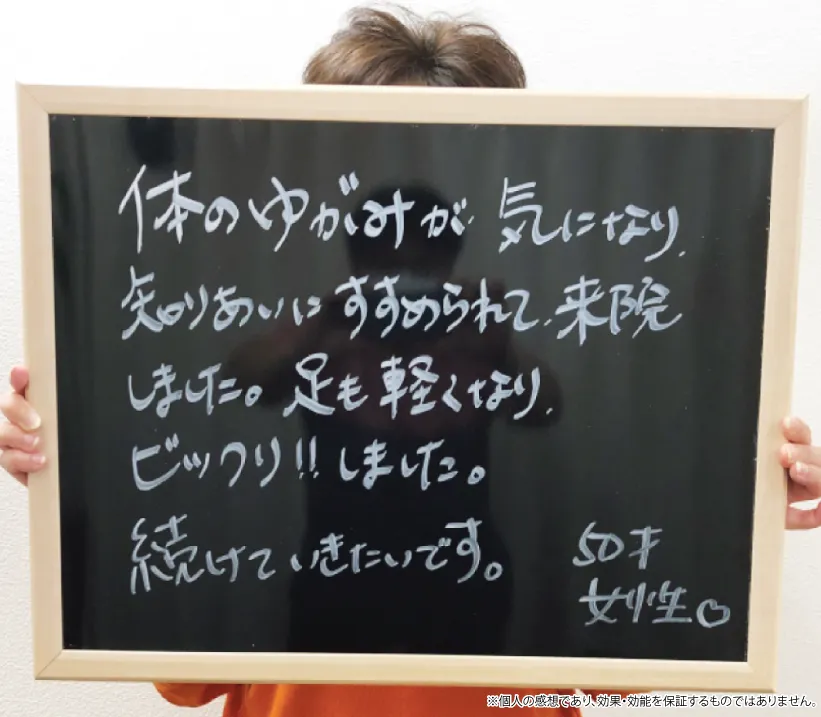 体のゆがみが 気になり、
知りあいにすすめられて、来院
しました。足も軽くなり、
ビックリ!!しました。
続けていきたいです。
50才
女性♡
※個人の感想であり、効果・効能を保証するものではありません。